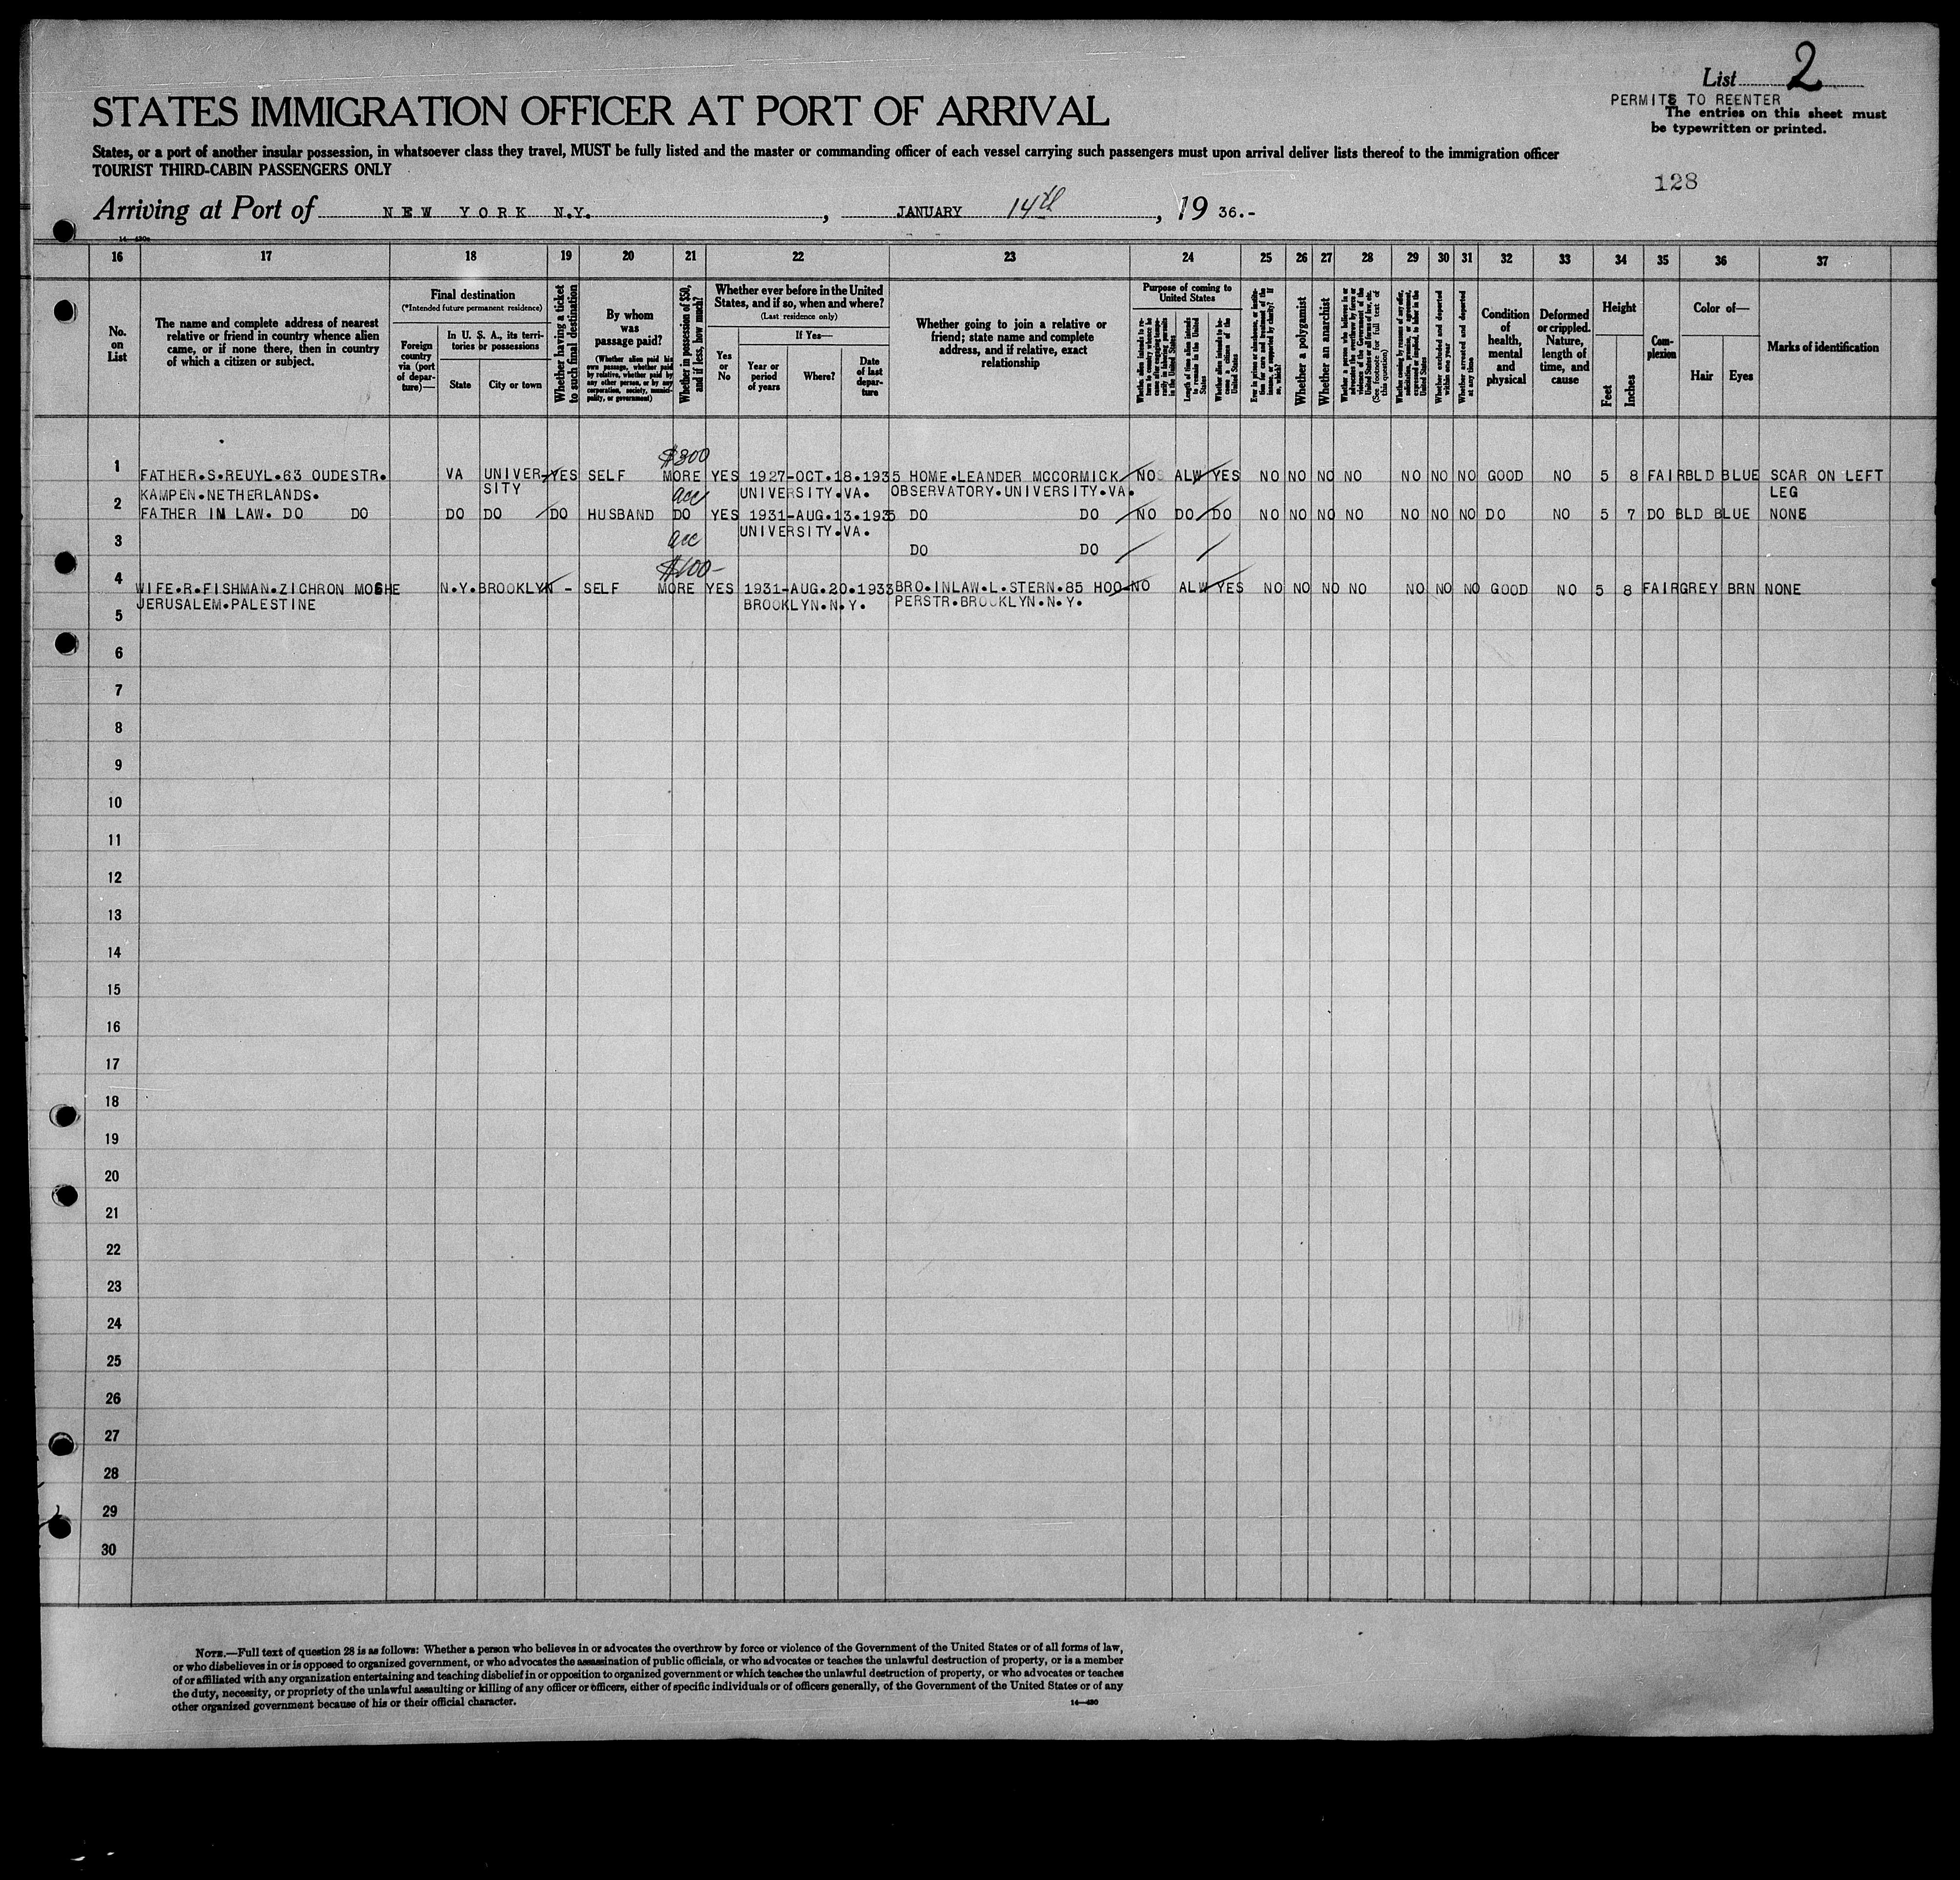 List 2
PERMITS TO REENTER
The entries on this sheet must
be typewritten or printed.
STATES IMMIGRATION OFFICER AT PORT OF ARRIVAL
States, or a port of another insular possession, in whatsoever class they travel, MUST be fully listed and the master or commanding officer of each vessel carrying such passengers must upon arrival deliver lists thereof to the immigration officer
TOURIST THIRD-CABIN PASSENGERS ONLY
128
Arriving at Port of NEW YORK N.Y. , JANUARY 14th , 19 36.-
16 17 18 19 20 21 22 23 24 25 26 27 28 29 30 31 32 33 34 35 36 37
No. on List
The name and complete address of nearest relative or friend in country whence alien came, or if none there, then in country of which a citizen or subject.
Final destination
(*Intended future permanent residence)
Foreign country via (port of departure)—
In U. S. A., its territories or possessions
State
City or town
Whether having a ticket to such final destination
By whom was passage paid?
(Whether alien paid his own passage, whether paid by relative, whether paid by any other person, or by any corporation, society, municipality, or government)
Whether in possession of $50, and if less, how much?
Whether ever before in the United States, and if so, when and where?
(Last residence only)
Yes or No
If Yes—
Year or period of years
Where?
Date of last departure
Whether going to join a relative or friend; state name and complete address, and if relative, exact relationship
Purpose of coming to United States
Length of time alien intends to remain in the United States
Whether alien intends to become a citizen of the United States
Whether a polygamist
Whether an anarchist
(See footnote for full text of this question)
Whether excluded and deported within one year
Whether arrested and deported at any time
Condition of health, mental and physical
Deformed or crippled. Nature, length of time, and cause
Height
Feet
Inches
Complexion
Color of—
Hair
Eyes
Marks of identification
$300
1 FATHER.S.REUYL.63 OUDESTR. VA UNIVER- YES SELF MORE YES 1927-OCT.18.1935 HOME.LEANDER MCCORMICK NO ALW YES NO NO NO NO NO NO NO GOOD NO 5 8 FAIR BLD BLUE SCAR ON LEFT
KAMPEN.NETHERLANDS. SITY acc UNIVERSITY.VA. OBSERVATORY.UNIVERSITY.VA. LEG
2 FATHER IN LAW. DO DO DO DO DO HUSBAND DO YES 1931-AUG.13.1935 DO DO NO DO DO NO NO NO NO NO NO NO DO NO 5 7 DO BLD BLUE NONE
UNIVERSITY.VA.
3 acc DO DO
$100-
4 WIFE.R.FISHMAN.ZICHRON MOSHE N.Y. BROOKLYN - SELF MORE YES 1931-AUG.20.1933 BRO.INLAW.L.STERN.85 HOO- NO ALW YES NO NO NO NO NO NO NO GOOD NO 5 8 FAIR GREY BRN NONE
JERUSALEM.PALESTINE BROOKLYN.N.Y. PERSTR.BROOKLYN.N.Y.
5
6
7
8
9
10
11
12
13
14
15
16
17
18
19
20
21
22
23
24
25
26
27
28
29
30
NOTE.—Full text of question 28 is as follows: Whether a person who believes in or advocates the overthrow by force or violence of the Government of the United States or of all forms of law,
or who disbelieves in or is opposed to organized government, or who advocates the assassination of public officials, or who advocates or teaches the unlawful destruction of property, or is a member
of or affiliated with any organization entertaining and teaching disbelief in or opposition to organized government or which teaches the unlawful destruction of property, or who advocates or teaches
the duty, necessity, or propriety of the unlawful assaulting or killing of any officer or officers, either of specific individuals or of officers generally, of the Government of the United States or of any
other organized government because of his or their official character.
14—430